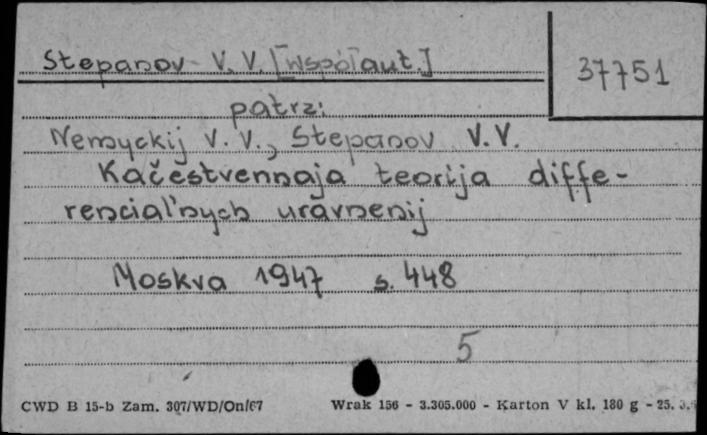 Stepanov V. V. [Współaut.]
37751
patrz:
Nemyckij V. V., Stepanov V. V.
Kačestvennaja teorija diffe-
rencial'nych uravnenij
Moskva 1947 s. 448
5
CWD B 15-b Zam. 307/WD/On/67 Wrak 156 - 3.305.000 - Karton V kl. 180 g - 25.